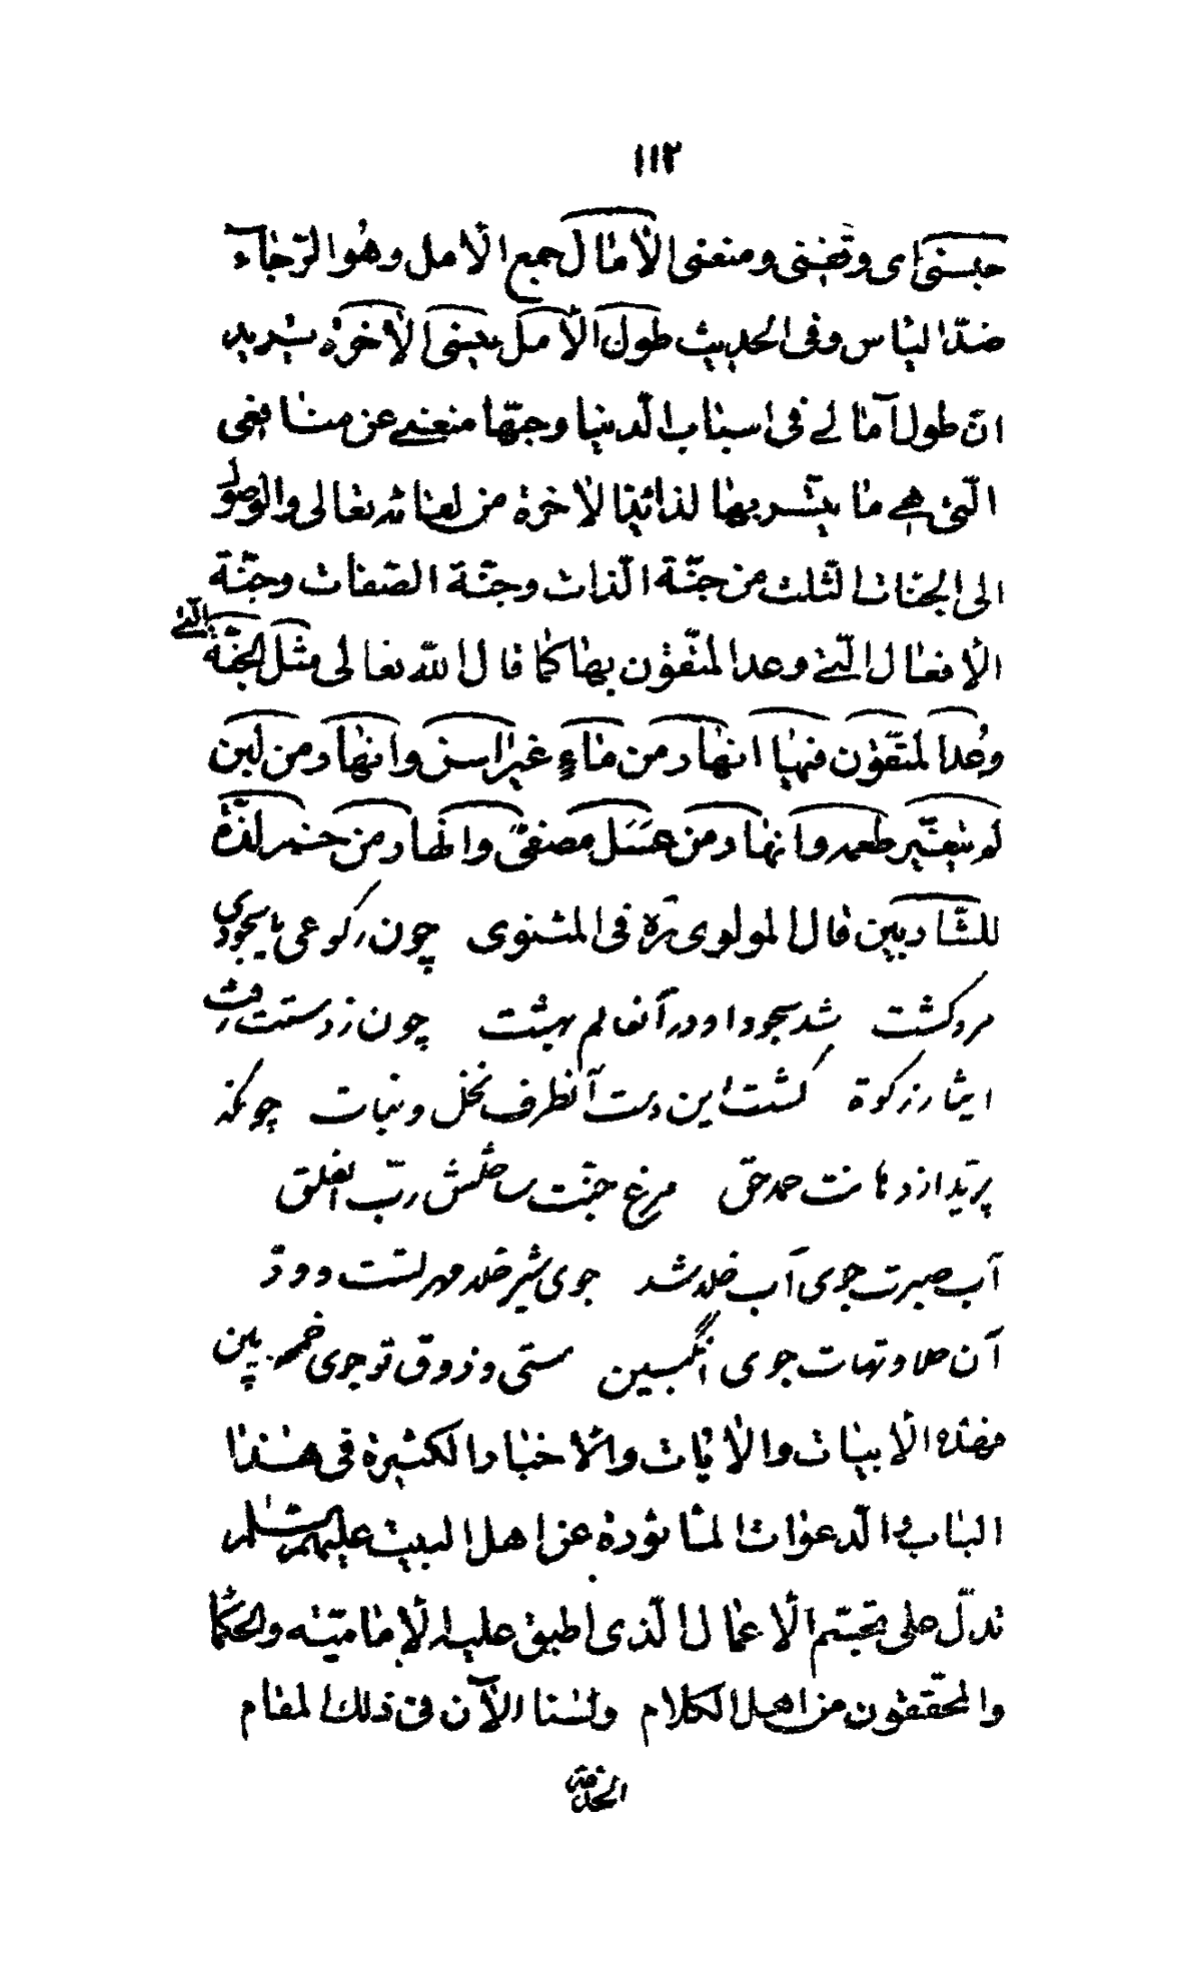 ١١٢
حبسنی ای وقفنی ومنعنی الامال جمع الأمل وهو الرّجاء
ضدّ الیأس وفی الحدیث طول الأمل ینسی الأخرة یرید
انّ طول آمالے فی اسباب الدّنیا وحبّها منعنے عن منافعی
الّتی هی ما یتیسّر بها لذائذ الاخرة من لقائه تعالی والوصول
الی الجنّات الثّلث من جنّة الذّات وجنّة الصّفات وجنّة
الأفعال الّتے وعد المتّقون بها کما قال الله تعالی مثل الجنّة الّتے
وُعد المتّقون فیها انهار من ماءٍ غیر اسن وانهار من لبن
لم یتغیّر طعمه وانهار من عسَل مصفیّ وانهار من خمر لذّة
للشّاربین قال المولوی ره فی المثنوی چون رکوعی یا سجودی
مرد کشت شد سجود او در آنعالم بهشت چون ز دستت رفت
ایثار زکوة کشت این دست آنطرف نخل ونبات چونکه
پرّید از دهانت حمد حقّ مرغ جنّت ساختش ربّ الفلق
آب صبرت جوی آب خلد شد جوی شیر خلد مهر تست و ودّ
آن حلاوتهات جوی انگبین مستی و ذوق تو جوی خمر بین
فهذه الابیات والأیات والأخبار الکثیرة فی هذا
الباب والدّعوات المأثورة عن اهل البیت علیهم السّلام
تدلّ علی تجسّم الأعمال الّذی اطبق علیه الإمامیّة والحکما
والمحقّقون من اهل الکلام ولسنا الآن فی ذلك المقام